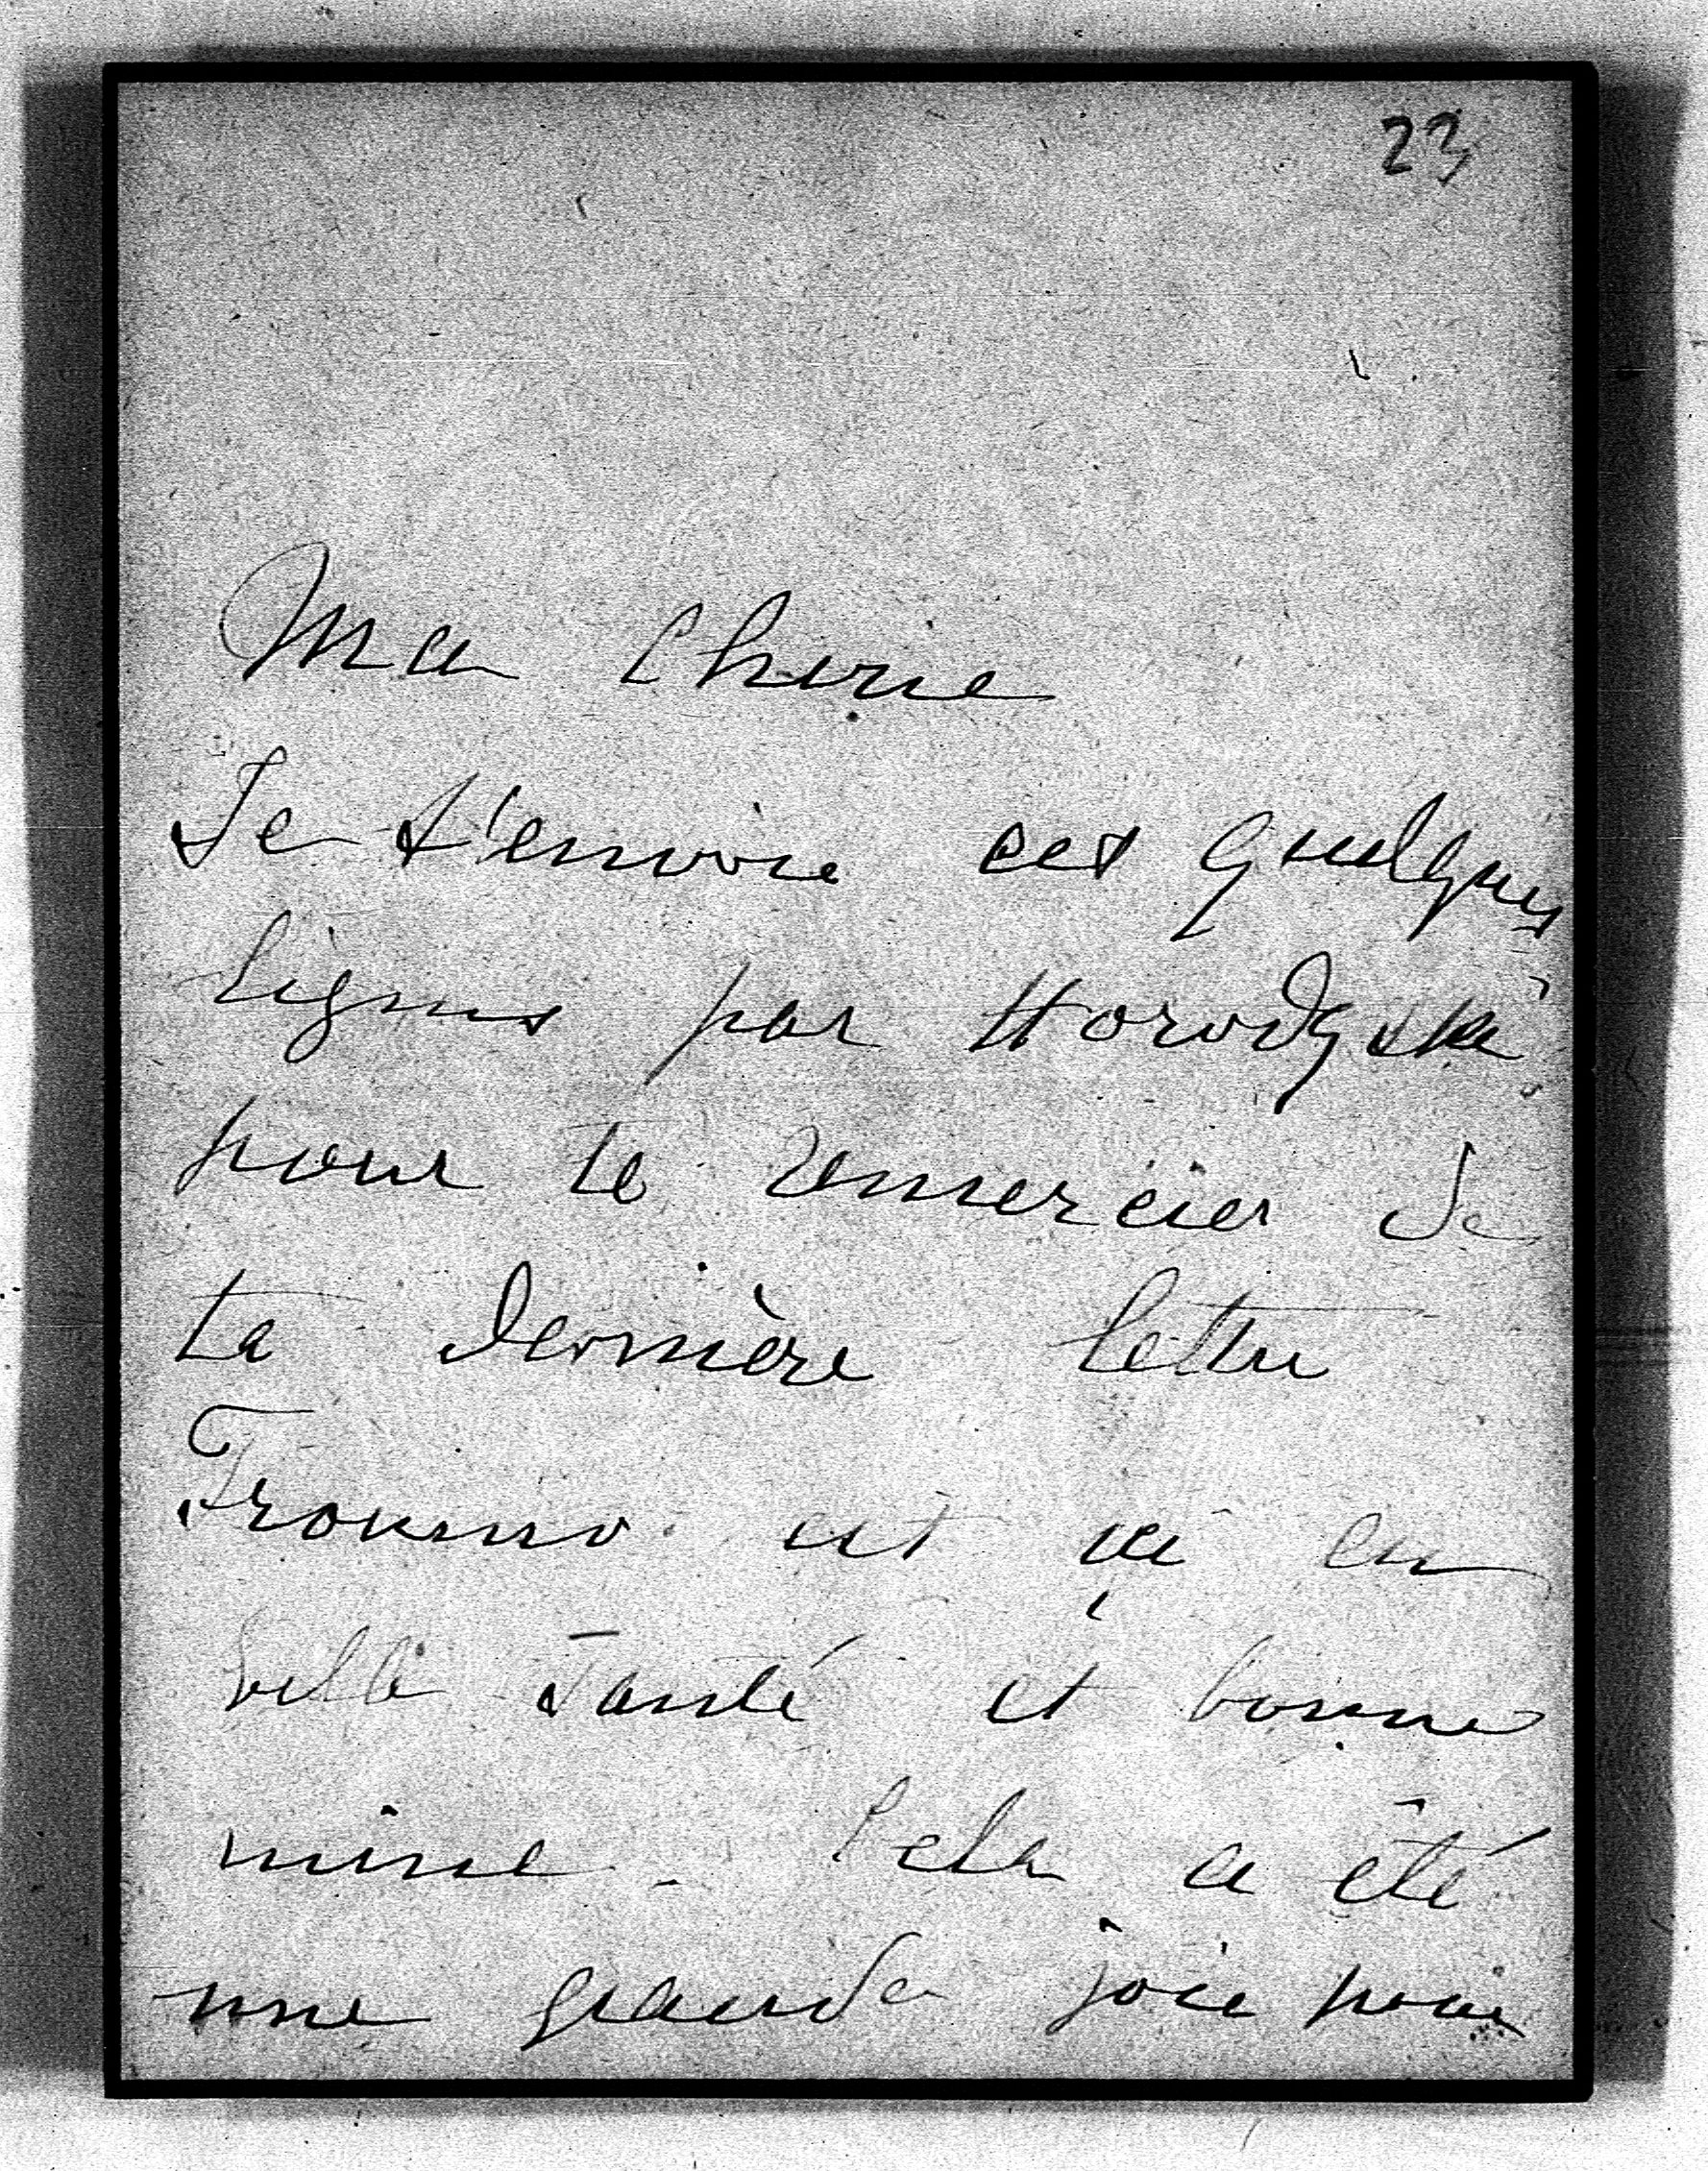 23
Ma Cherie
Je t'envoie ces quelques
lignes par Horodyski
pour te remercier de
ta dernière lettre
est ici en
belle santé et bonne
mine. Cela a été
une grande joie pour